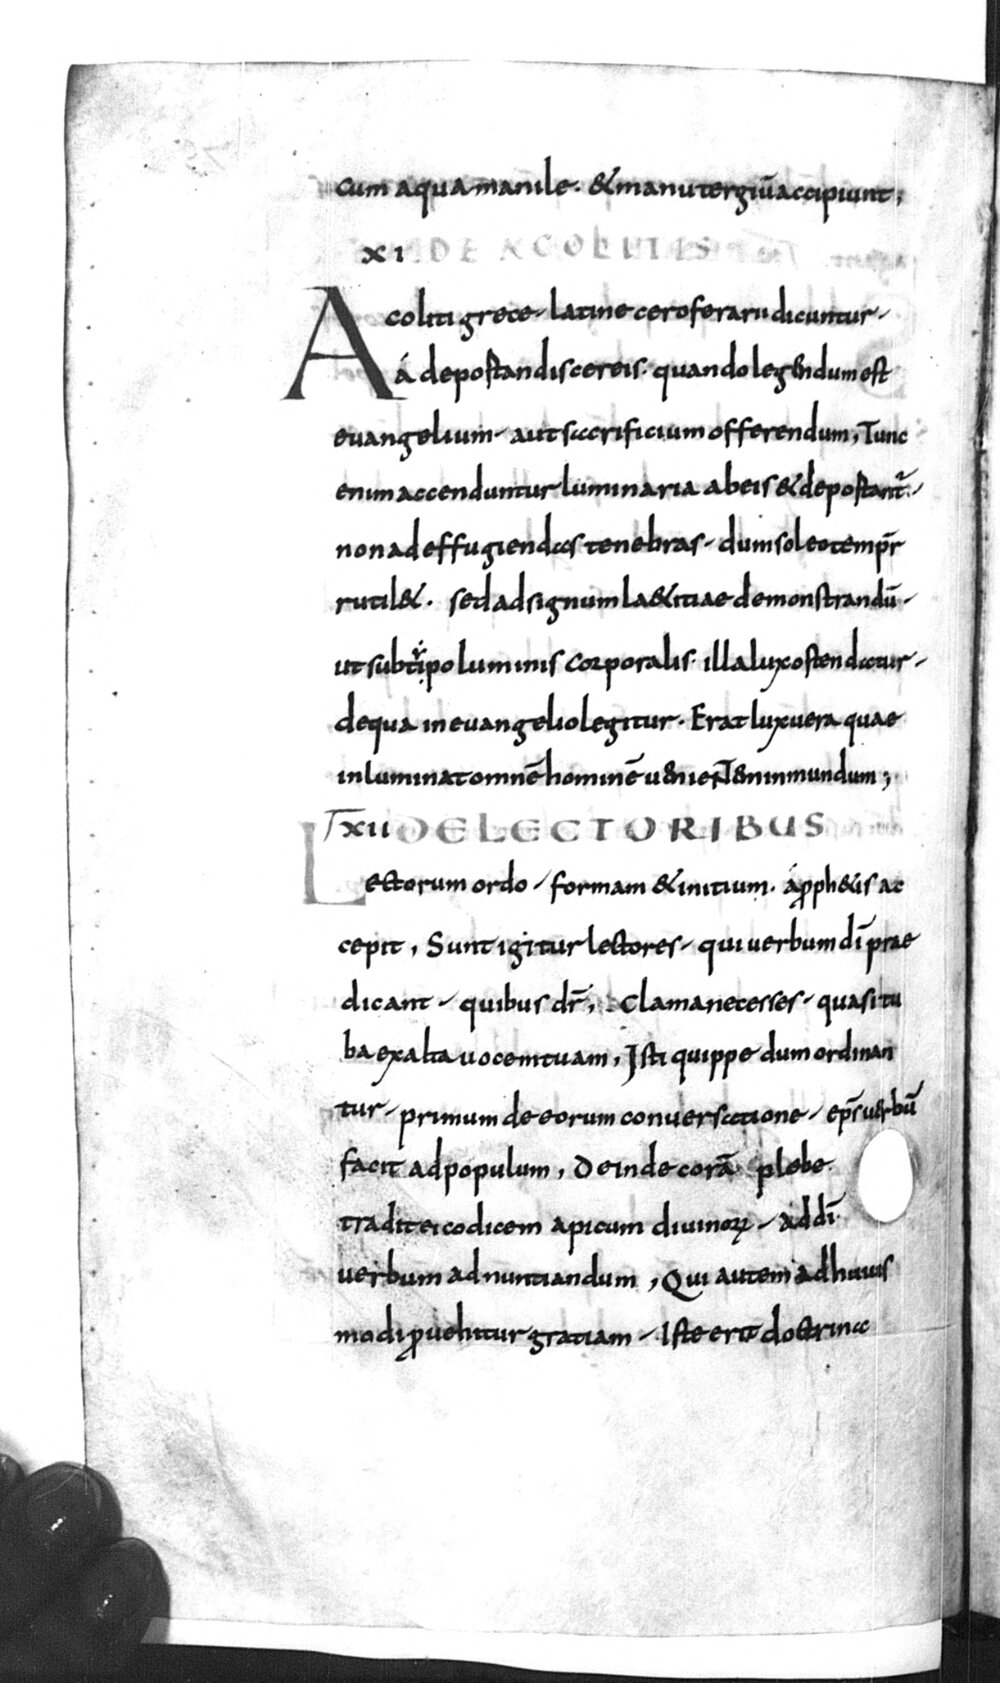 cum aqua manile · & manutergiū accipiunt ;
XI DE ACOLITIS
Acoliti grece · latine ceroferarii dicuntur ·
á depostandis cereis · quando leg&ndum est
euangelium · aut sacrificium offerendum , Tunc
enim accenduntur luminaria ab eis & depostant᷑ ·
non ad effugiendas tenebras · dum sol eo temp̄r
rutil& · sed ad signum la&itiae demonstrandū ·
ut sub tẏpo luminis corporalis · illa lux ostendatur ·
de qua in euangelio legitur · Erat lux uera quae
inluminat omnē hominē u&nie̅t&n in mundum ;
XII DE LECTORIBUS
Lectorum ordo · formam & initium · á ꝓph&is ac
cepit , Sunt igitur lectores · qui uerbum dī prae
dicant · quibus dr̄ , Clama ne cesses · quasi tu
ba exalta uocem tuam , Isti quippe dum ordinan
tur · primum de eorum conuersatione · ep̄s u&rbū
facit ad populum , Deinde corā plebe
tradit ei codicem apicum diuinoꝝ · ad dī
uerbum adnuntiandum , Qui autem ad huius
modi ꝓuehitur gratiam · Iste erit doctrina